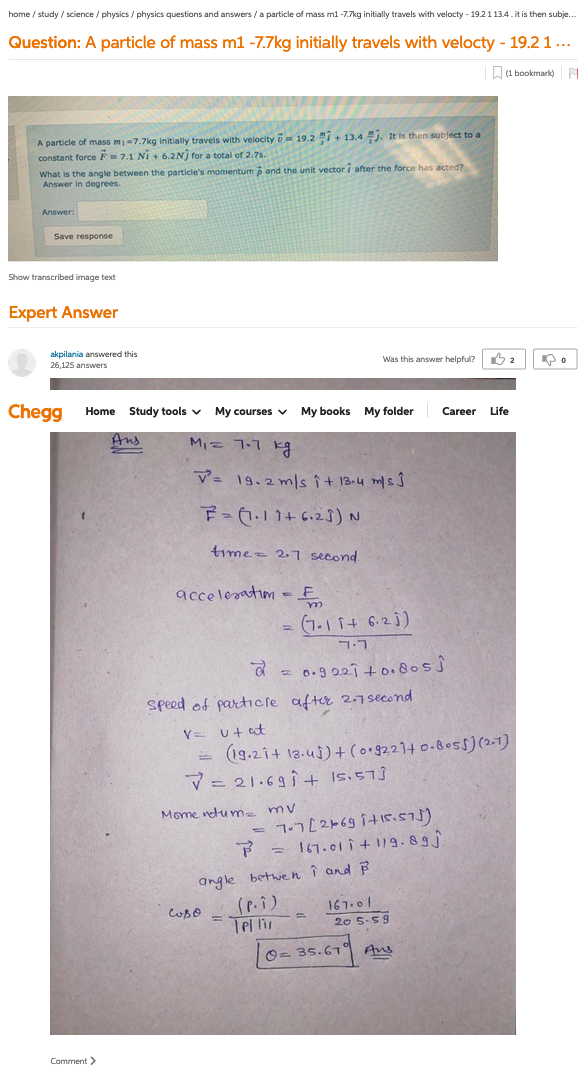 home / study / science / physics / physics questions and answers / a particle of mass m1 -7.7kg initially travels with velocty - 19.2 1 13.4 . it is then subje...
Question: A particle of mass m1 -7.7kg initially travels with velocty - 19.2 1 ...
(1 bookmark)
A particle of mass m₁=7.7kg initially travels with velocity v⃗ = 19.2 m/s î + 13.4 m/s ĵ. It is then subject to a
constant force F⃗ = 7.1 Nî + 6.2Nĵ for a total of 2.7s.
What is the angle between the particle's momentum p⃗ and the unit vector î after the force has acted?
Answer in degrees.
Answer:
Save response
Show transcribed image text
Expert Answer
akpilania answered this
26,125 answers
Was this answer helpful?
2
0
Chegg Home Study tools My courses My books My folder Career Life
Ans M₁= 7.7 kg
V⃗= 19.2 m/s î + 13.4 m/s ĵ
F⃗ = (7.1 î + 6.2ĵ) N
time = 2.7 second
acceleration = F/m
= (7.1 î + 6.2 ĵ)/7.7
a⃗ = 0.922î + 0.805 ĵ
speed of particle after 2.7 second
V= u + at
= (19.2î + 13.4ĵ) + (0.922î + 0.805ĵ)(2.7)
V⃗ = 21.69î + 15.57ĵ
Momentum= mV
= 7.7 [21.69 î + 15.57ĵ)
P⃗ = 167.01 î + 119.89ĵ
angle betwen î and P⃗
Cosθ = (P.î)/|P||i| = 167.01/205.59
θ= 35.67° Ans
Comment